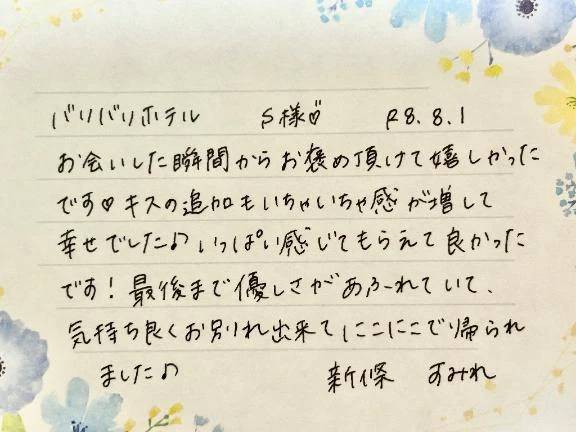 バリバリホテル S様♡ R8.8.1
お会いした瞬間からお褒め頂けて嬉しかった
です♡キスの追加もいちゃいちゃ感が増して
幸せでした♪いっぱい感じてもらえて良かった
です!最後まで優しさがあふれていて、
気持ち良くお別れ出来てにこにこで帰られ
ました♪ 新條 すみれ